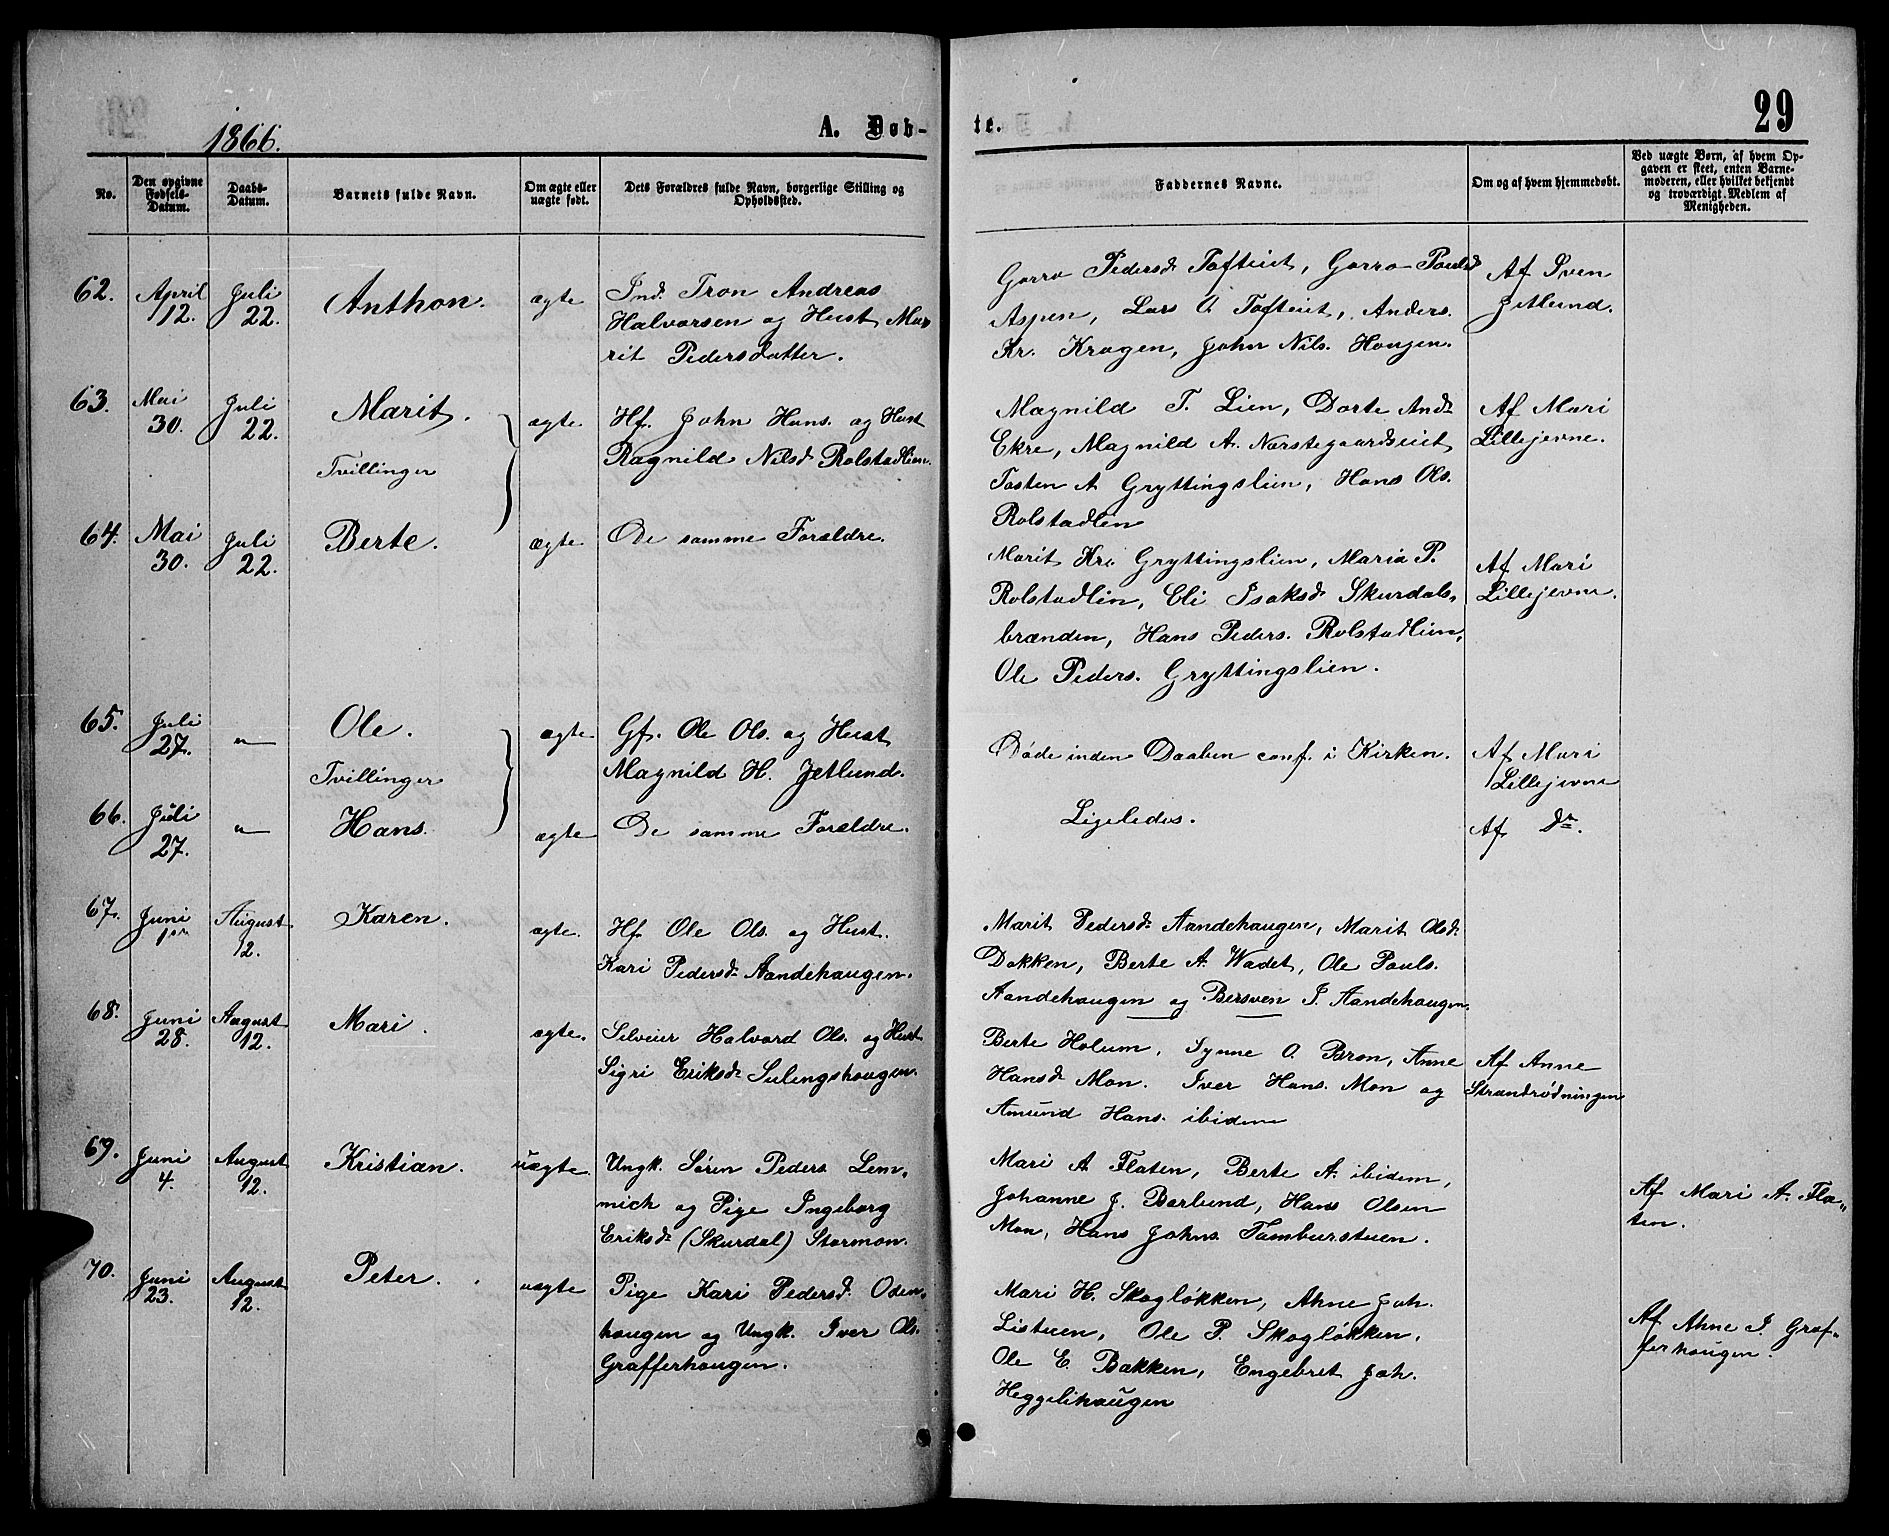 1866.
A. Døb-
te.
29
No.
Den opgivne Fødsels-Datum.
Daabs-Datum.
Barnets fulde Navn.
Om ægte eller uægte født.
Dets Forældres fulde Navn, borgerlige Stilling og Opholdssted.
Faddernes Navne.
Om og af hvem hjemmedøbt.
Ved uægte Børn, af hvem Op-
gaven er skeet, enten Barne-
moderen, eller hvilket bekjendt
og troværdigt Medlem af
Menigheden.
62. April 12. Juli 22. Anthon. ægte
Ind. Tron Andreas
Halvorsen og Hust. Ma-
rit Pedersdatter.
Gorro Pedersd. Tofteiet, Gorro Paulsd
Aspen, Lars O. Tofteiet, Anders
Kr. Kragen, John Nils. Hougen.
Af Sven
Jetlund.
63. Mai 30. Juli 22. Marit. ægte
Tvillinger
Hf. John Hans. og Hust
Ragnild Nilsd Rolstadlien.
Magnild T. Lien, Dorte And.
Ekre, Magnild A. Nørstegaardseiet
Tosten A Gryttingslien, Hans Ols.
Rolstadlen
Af Mari
Lillejevne.
64. Mai 30. Juli 22. Berte. ægte
De samme Forældre.
Marit Kr. Gryttingslien, Maria P.
Rolstadlin, Eli Isaksd. Skurdals-
brænden, Hans Peders. Rolstadlien,
Ole Peders. Gryttingslien.
Af Mari
Lillejevne.
65. Juli 27. " Ole. ægte
Tvillinger
Gf. Ole Ols. og Hust
Magnild H. Jetlund.
Døde inden Daaben conf. i Kirken.
Af Mari
Lillejevne
66. Juli 27. " Hans. ægte
De samme Forældre.
Ligeledes.
Af Do.
67. Juni 1ste August 12. Karen. ægte.
Hf. Ole Ols. og Hust.
Kari Pedersd. Aandehaugen.
Marit Pedersd. Aandehaugen, Marit Olsd.
Dokken, Berte A. Wadet, Ole Pauls.
Aandehaugen og Bersven I. Aandehaugen.
68. Juni 28. August 12. Mari. ægte.
Selveier Halvord Ols. og Hust.
Sigri Eriksd. Sulingshougen.
Berte Holum, Synne O. Bron, Anne
Hansd. Mon. Iver Hans. Mon og
Amund Hans. ibidem
Af Anne
Strandrødningen
69. Juni 4. August 12. Kristian. uægte.
Ungk. Søren Peders Lem-
mich og Pige Ingeborg
Eriksd. (Skurdal) Stormon.
Mari A Flaten, Berte A. ibidem,
Johanne J. Barlund, Hans Olsen
Mon, Hans Johns. Tamburstuen.
Af Mari A. Fla-
ten.
70. Juni 23. August 12. Peter. uægte
Pige Kari Pedersd. Oden-
haugen og Ungk. Iver Ols.
Grafferhougen.
Mari H. Skogløkken, Ahne Joh.
Listuen, Ole P. Skogløkken,
Ole E. Bakken, Engebret Joh.
Heggelihaugen
Af Ahne I. Graf-
ferhaugen.